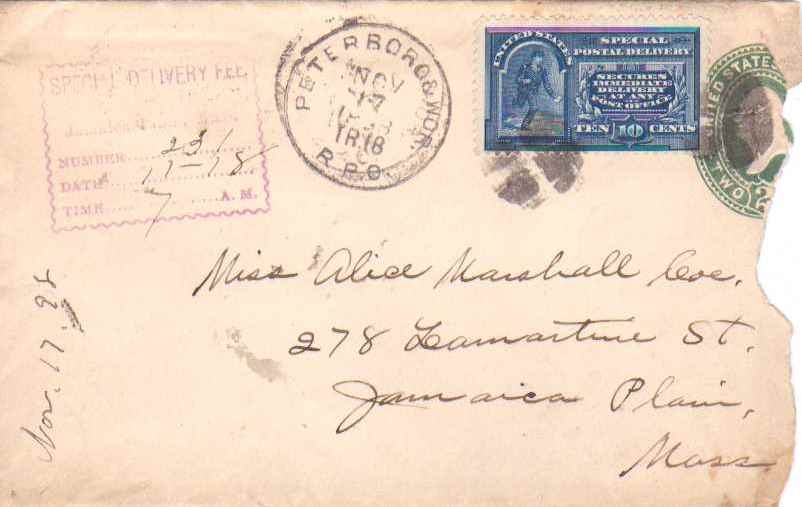 SPECIAL DELIVERY FEE
Jamaica Plain
NUMBER 231
DATE 11-18
TIME 7 A. M.
PETERBORO & WOR.
NOV
17
TR18
R.P.O.
UNITED STATES
SPECIAL
POSTAL DELIVERY
SECURES
IMMEDIATE
DELIVERY
AT ANY
POST OFFICE
TEN 10 CENTS
UNITED STATES
TWO 2
Miss Alice Marshall Coe.
278 Lamartine St.
Jamaica Plain,
Mass
Nov. 17. 98